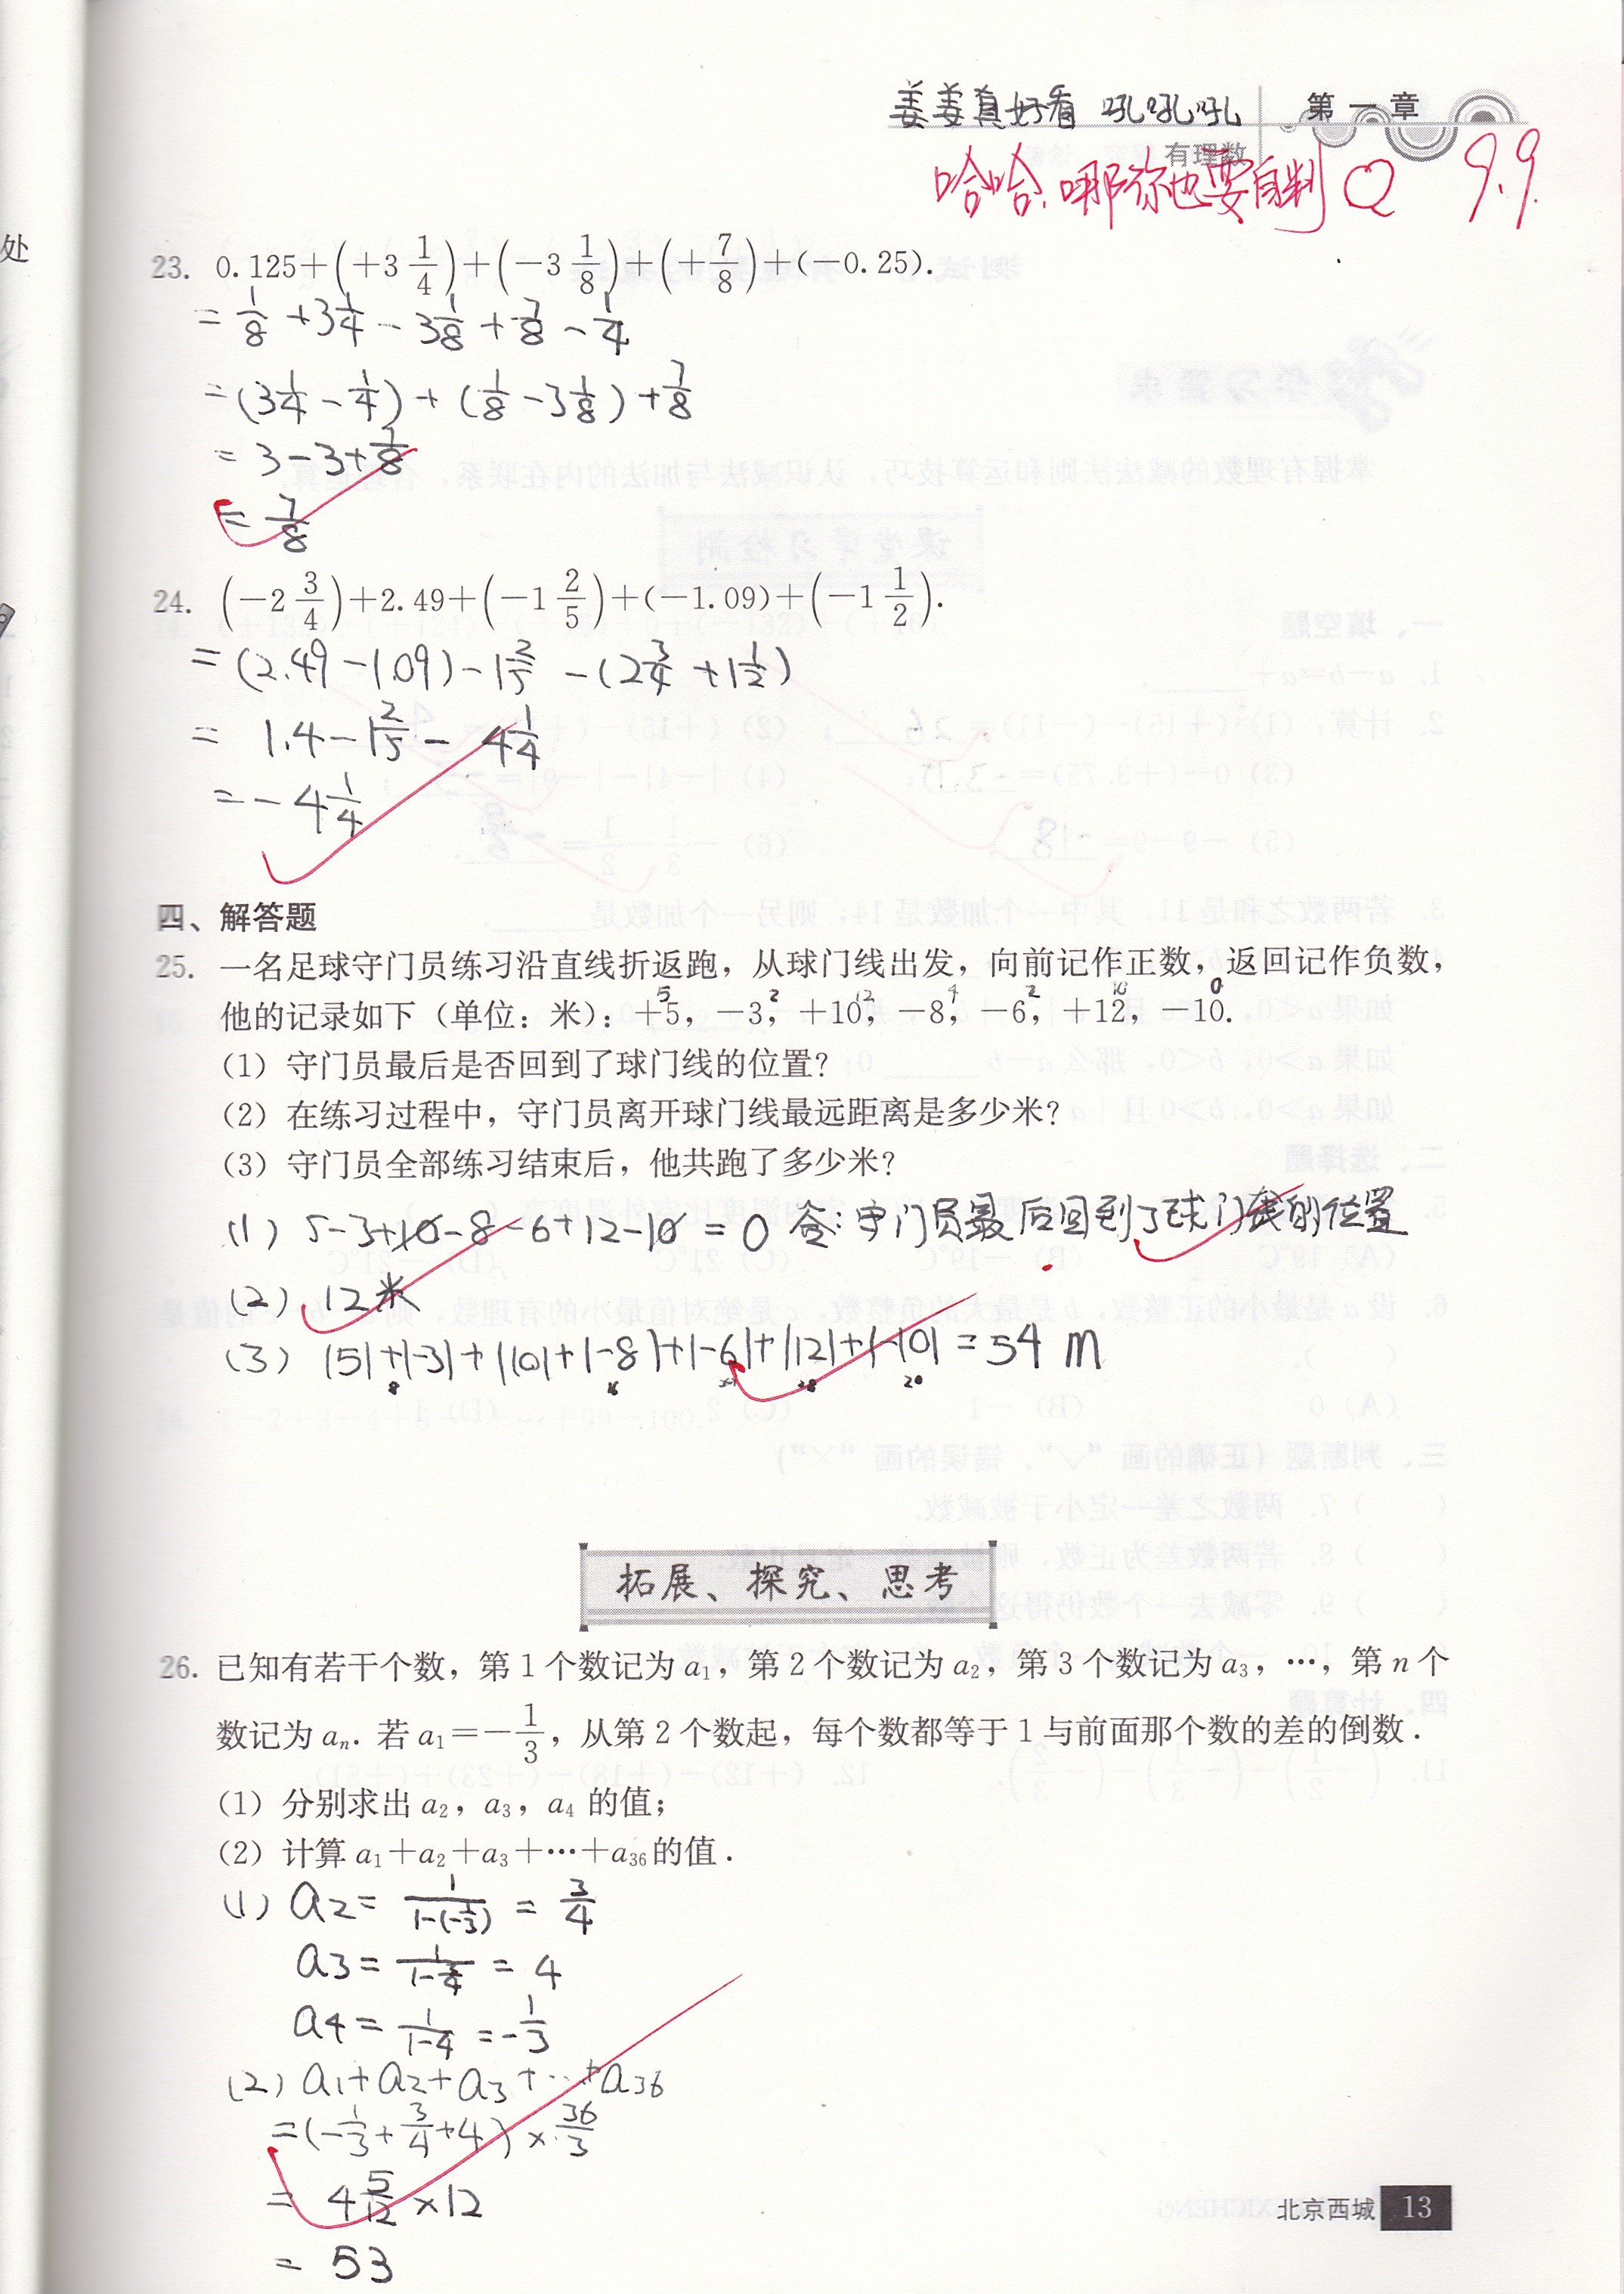 姜姜真好看 吼吼吼
第一章
有理数
哈哈. 哪你也要自判 Q 9.9
处
23. 0.125+(+3 1/4)+(-3 1/8)+(+7/8)+(-0.25).
= 1/8 + 3 1/4 - 3 1/8 + 7/8 - 1/4
= (3 1/4 - 1/4) + (1/8 - 3 1/8) + 7/8
= 3 - 3 + 7/8
= 7/8
24. (-2 3/4)+2.49+(-1 2/5)+(-1.09)+(-1 1/2).
= (2.49 - 1.09) - 1 2/5 - (2 3/4 + 1 1/2)
= 1.4 - 1 2/5 - 4 1/4
= - 4 1/4
四、解答题
25. 一名足球守门员练习沿直线折返跑，从球门线出发，向前记作正数，返回记作负数，
5 2 12 4 2 10 0
他的记录如下（单位：米）：+5，-3，+10，-8，-6，+12，-10.
（1）守门员最后是否回到了球门线的位置？
（2）在练习过程中，守门员离开球门线最远距离是多少米？
（3）守门员全部练习结束后，他共跑了多少米？
(1) 5-3+10-8-6+12-10 = 0 答：守门员最后回到了球门线的位置
(2) 12米
(3) |5|+|-3|+|10|+|-8|+|-6|+|12|+|-10| = 54 m
拓展、探究、思考
26. 已知有若干个数，第1个数记为a₁，第2个数记为a₂，第3个数记为a₃，…，第n个
数记为aₙ. 若a₁=-1/3，从第2个数起，每个数都等于1与前面那个数的差的倒数.
（1）分别求出a₂，a₃，a₄的值；
（2）计算a₁+a₂+a₃+…+a₃₆的值.
(1) a2 = 1/(1-(-1/3)) = 3/4
a3 = 1/(1-3/4) = 4
a4 = 1/(1-4) = -1/3
(2) a1+a2+a3+…+a36
= (-1/3 + 3/4 + 4) × 36/3
= 4 5/12 × 12
= 53
北京西城 13